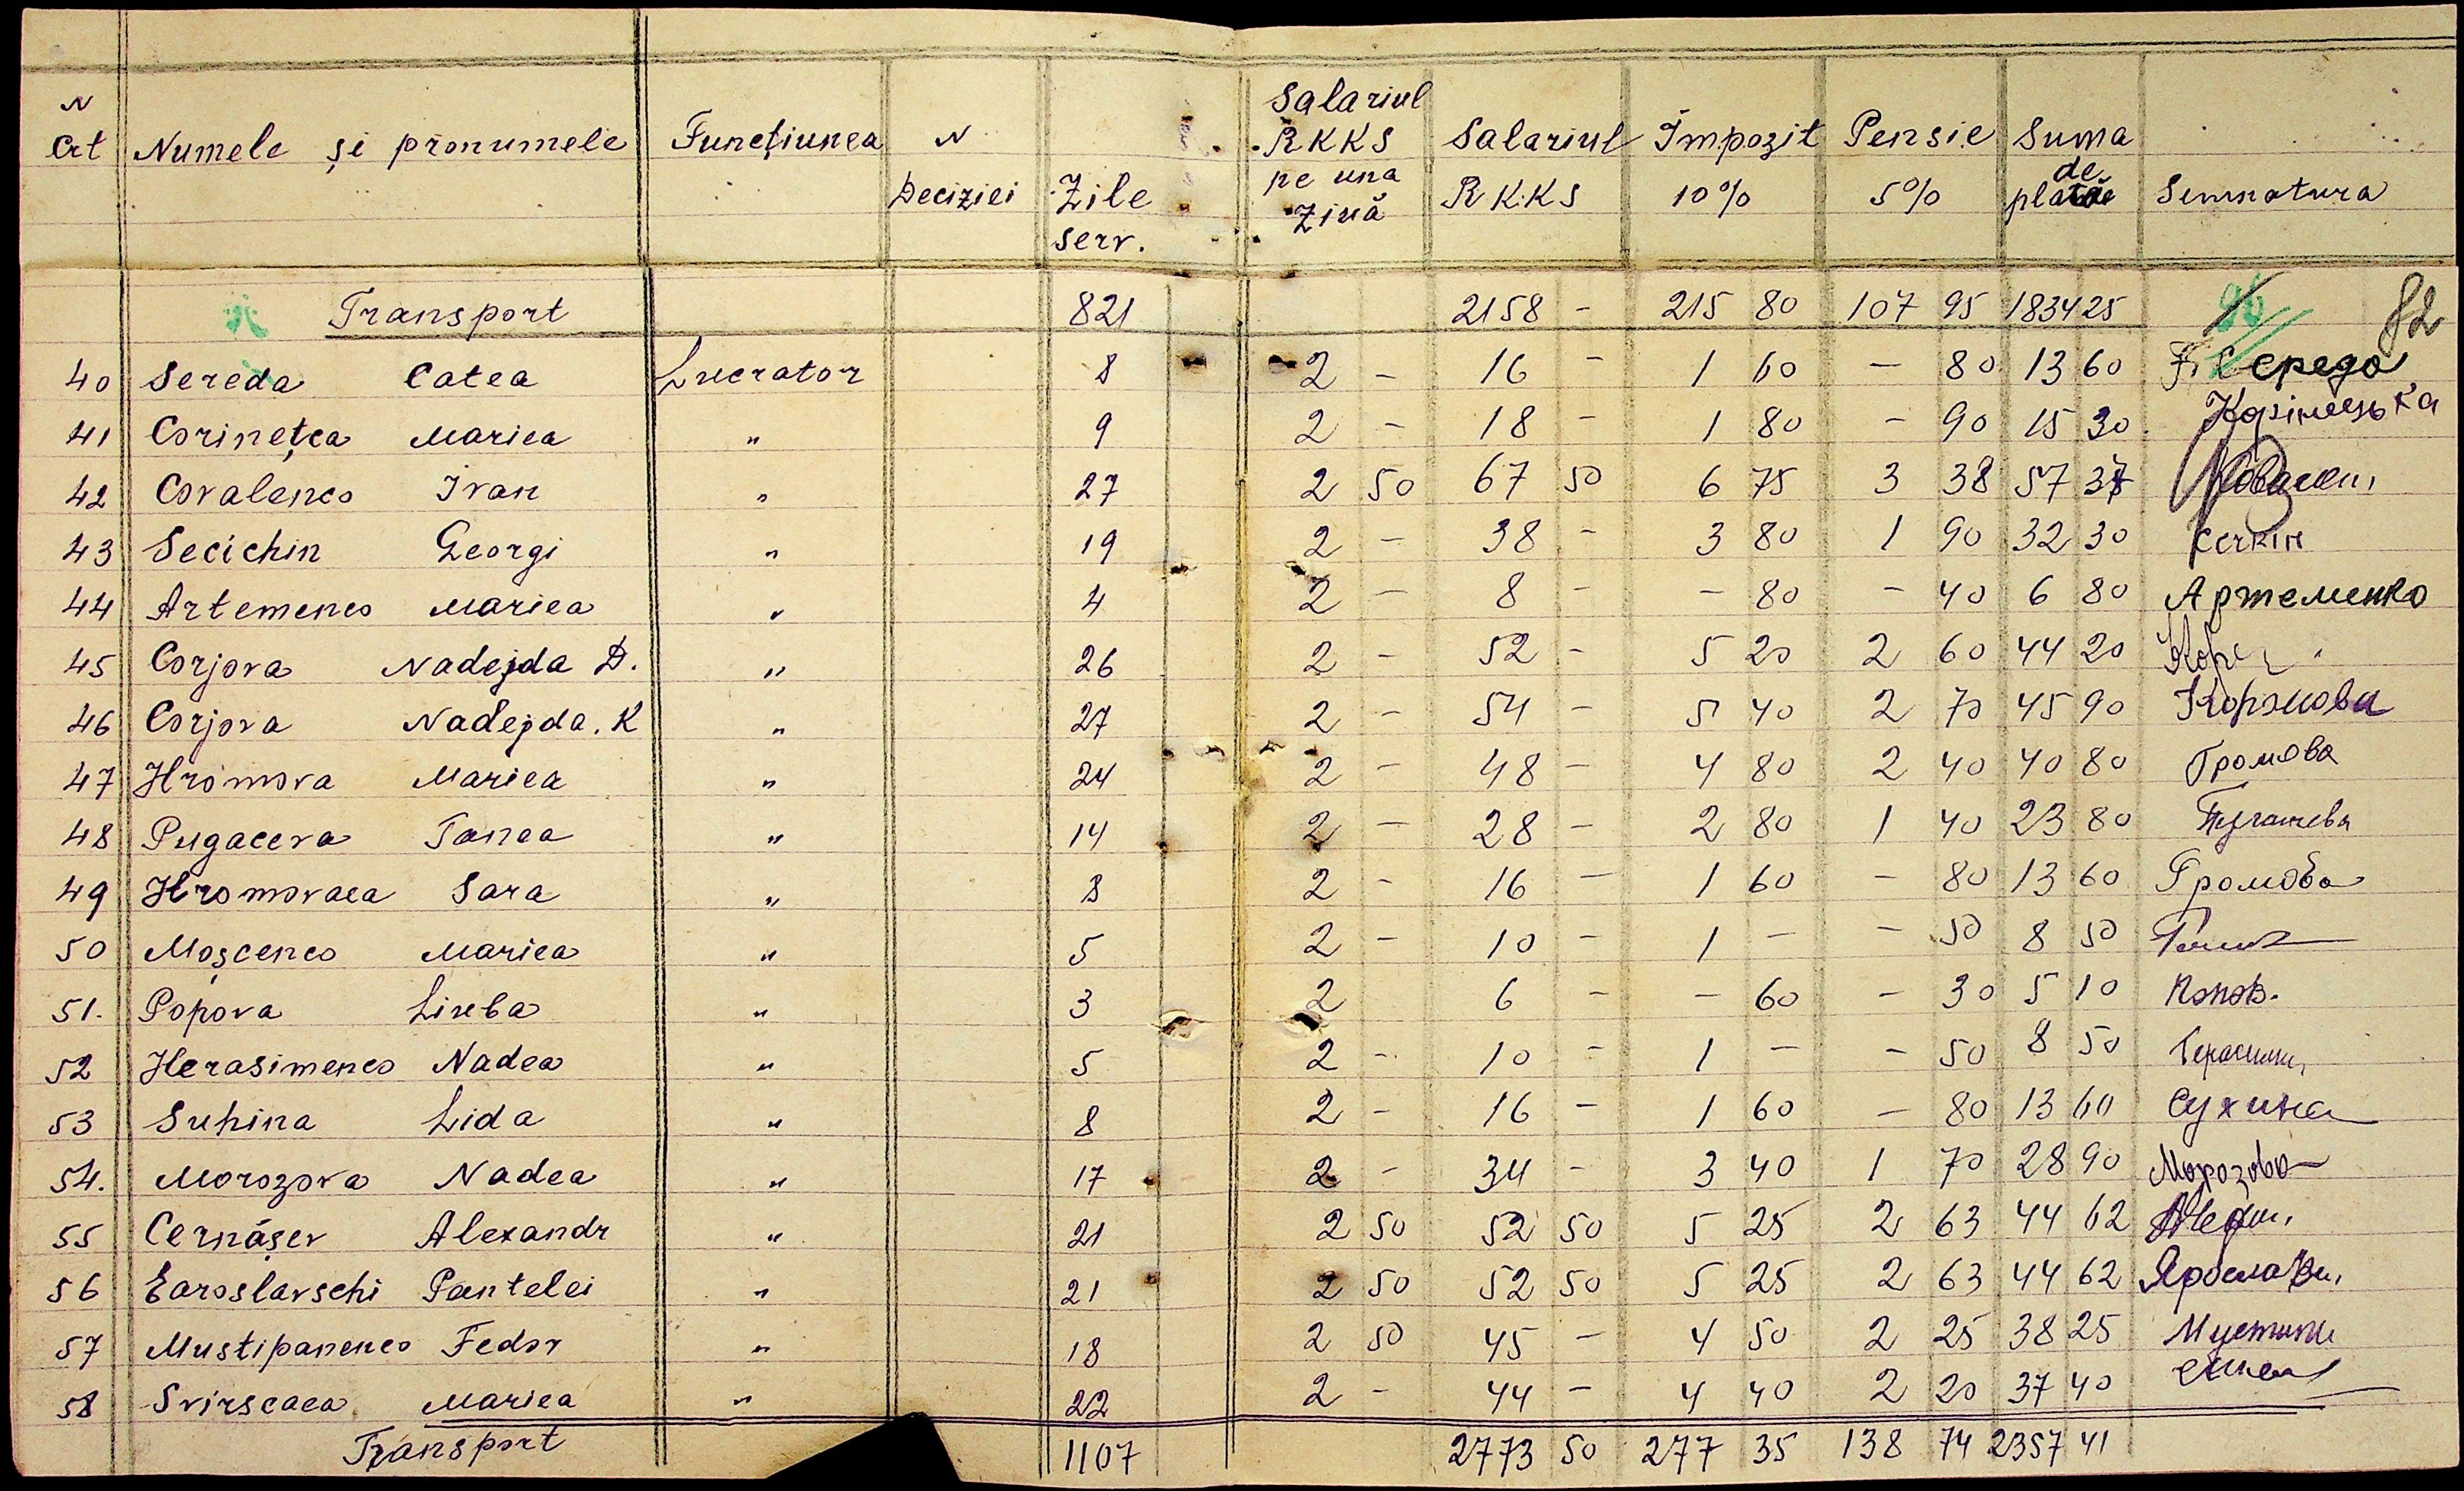 N Crt Numele și pronumele Funcțiunea N Deciziei Zile serv. Salariul RKKS pe una Zină Salariul RKKS Impozit 10% Pensie 5% Suma de plată Semnatura
Transport 821 2158 - 215 80 107 95 1834 25 82
40 Sereda Catea Lucrator 8 2 - 16 - 1 60 - 80 13 60 Середа
41 Corinețca Mariea " 9 2 - 18 - 1 80 - 90 15 30
42 Covalenco Ivan " 27 2 50 67 50 6 75 3 38 57 37
43 Secichin Georgi " 19 2 - 38 - 3 80 1 90 32 30
44 Artemenco Mariea " 4 2 - 8 - - 80 - 40 6 80 Артеменко
45 Corjova Nadejda D. " 26 2 - 52 - 5 20 2 60 44 20
46 Corjova Nadejda. K " 27 2 - 54 - 5 40 2 70 45 90 Коржова
47 Hromova Mariea " 24 2 - 48 - 4 80 2 40 40 80 Громова
48 Pugaceva Tanea " 14 2 - 28 - 2 80 1 40 23 80 Пугачева
49 Hromovaea Sara " 8 2 - 16 - 1 60 - 80 13 60 Громова
50 Moșcenco Mariea " 5 2 - 10 - 1 - - 50 8 50
51. Popova Liuba " 3 2 6 - - 60 - 30 5 10 Попов.
52 Herasimenco Nadea " 5 2 - 10 - 1 - - 50 8 50
53 Suhina Lida " 8 2 - 16 - 1 60 - 80 13 60 Сухина
54. Morozova Nadea " 17 2 - 34 - 3 40 1 70 28 90 Морозова
55 Cernășev Alexandr " 21 2 50 52 50 5 25 2 63 44 62
56 Earoslavschi Pantelei " 21 2 50 52 50 5 25 2 63 44 62
57 Mustipanenco Fedor " 18 2 50 45 - 4 50 2 25 38 25
58 Svirscaea Mariea " 22 2 - 44 - 4 40 2 20 37 40
Transport 1107 2773 50 277 35 138 74 2357 41